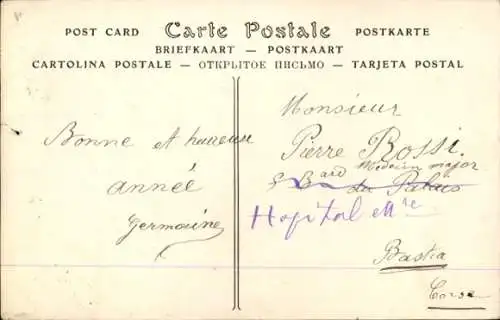 POST CARD Carte Postale POSTKARTE
BRIEFKAART — POSTKAART
CARTOLINA POSTALE — ОТКРЫТОЕ ПИСЬМО — TARJETA POSTAL
Bonne et heureuse
année
Germaine
Monsieur
Pierre Rossi
Médecin major
5 Bard du Palais
Hopital Mre
Bastia
Corse